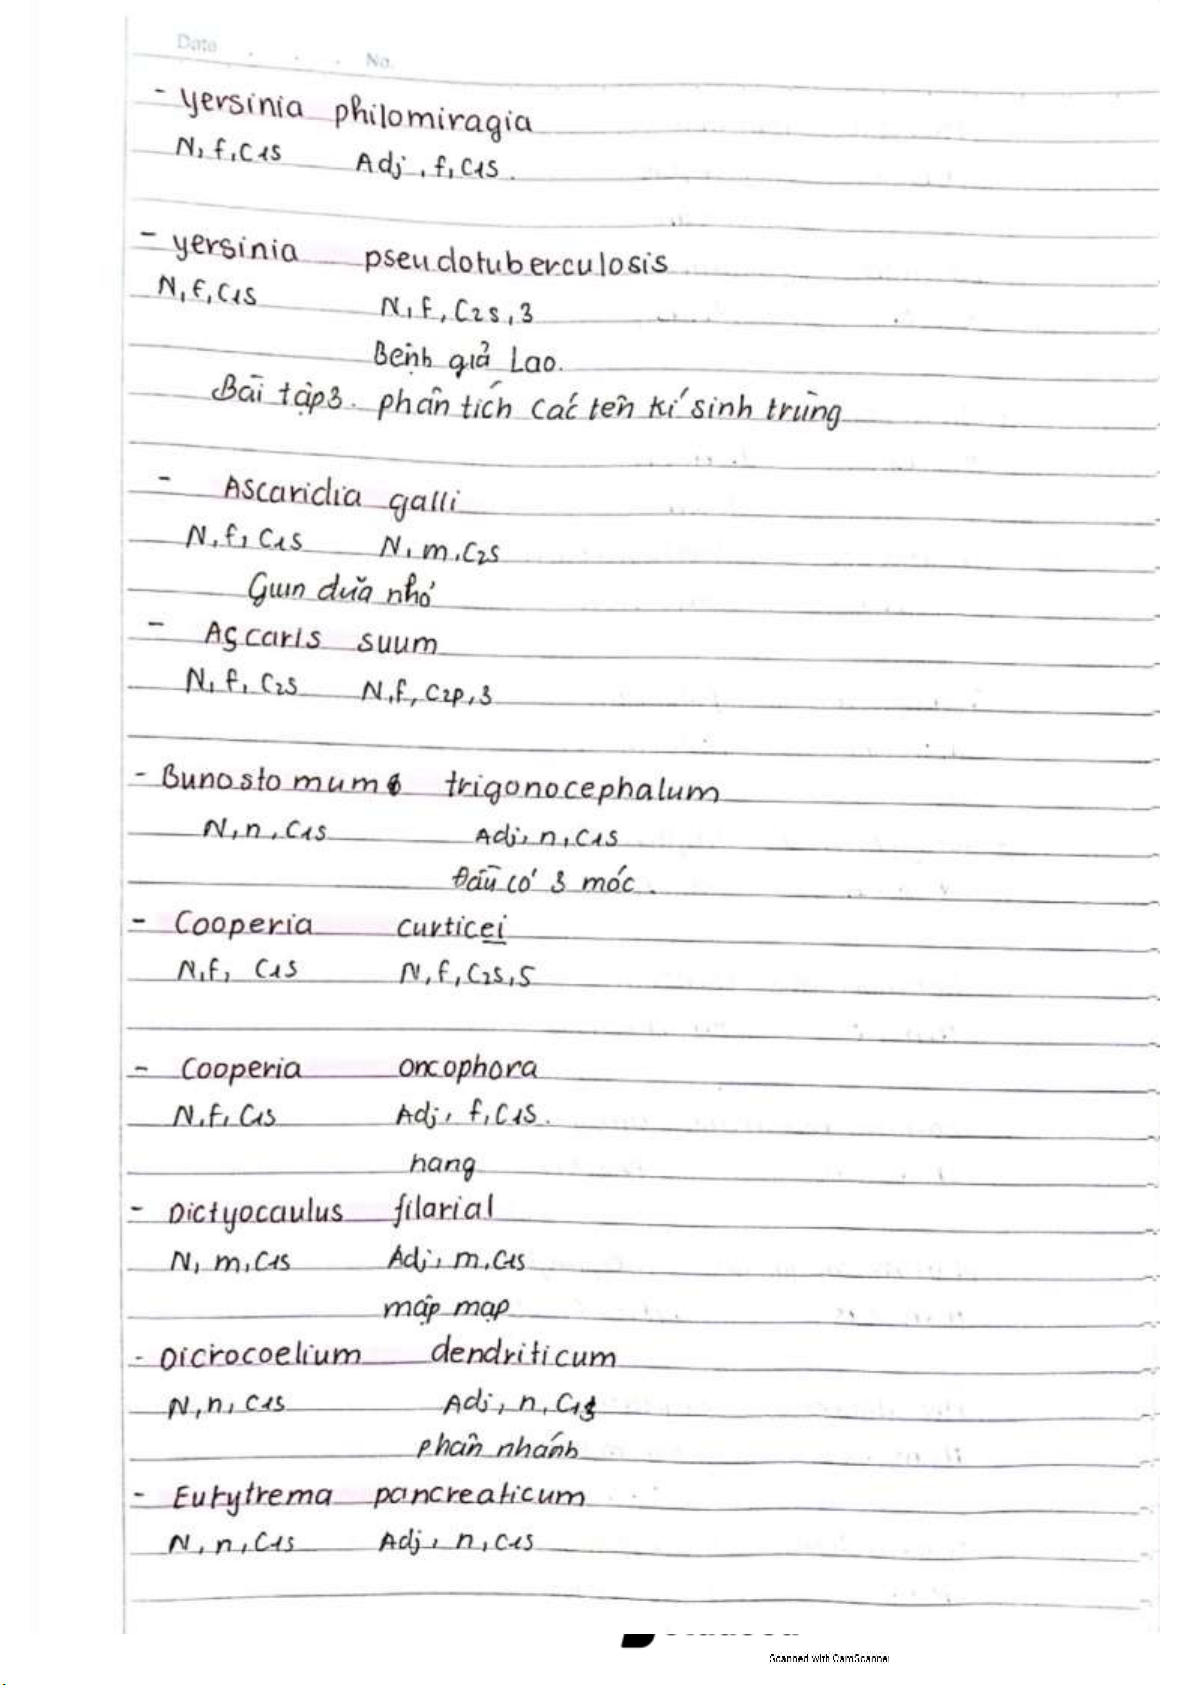 Date . . . No.
- Yersinia philomiragia
N, f, C1S Adj, f, C1S.
- yersinia pseudotuberculosis
N, f, C1S N, f, C2S, 3
Bệnh giả Lao.
Bài tập3. phân tích các tên kí sinh trùng
- Ascaridia galli
N, f, C1S N, m, C2S
Giun đũa nhỏ
- Ascaris suum
N, f, C2S N, f, C2P, 3
- Bunostomum trigonocephalum
N, n, C1S Adj, n, C1S
Đầu có 3 móc.
- Cooperia curticei
N, f, C1S N, f, C2S, 5
- Cooperia oncophora
N, f, C1S Adj, f, C1S.
hang
- Dictyocaulus filarial
N, m, C1S Adj, m, C1S
mập mạp
- Dicrocoelium dendriticum
N, n, C1S Adj, n, C1S
phân nhánh
- Eurytrema pancreaticum
N, n, C1S Adj, n, C1S
Scanned with CamScanner